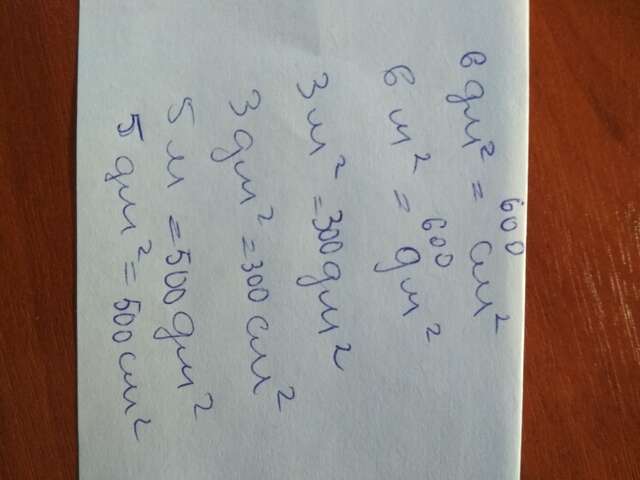 6 дм² = 600 см²
6 м² = 600 дм²
3 м² = 300 дм²
3 дм² = 300 см²
5 м = 500 дм²
5 дм² = 500 см²